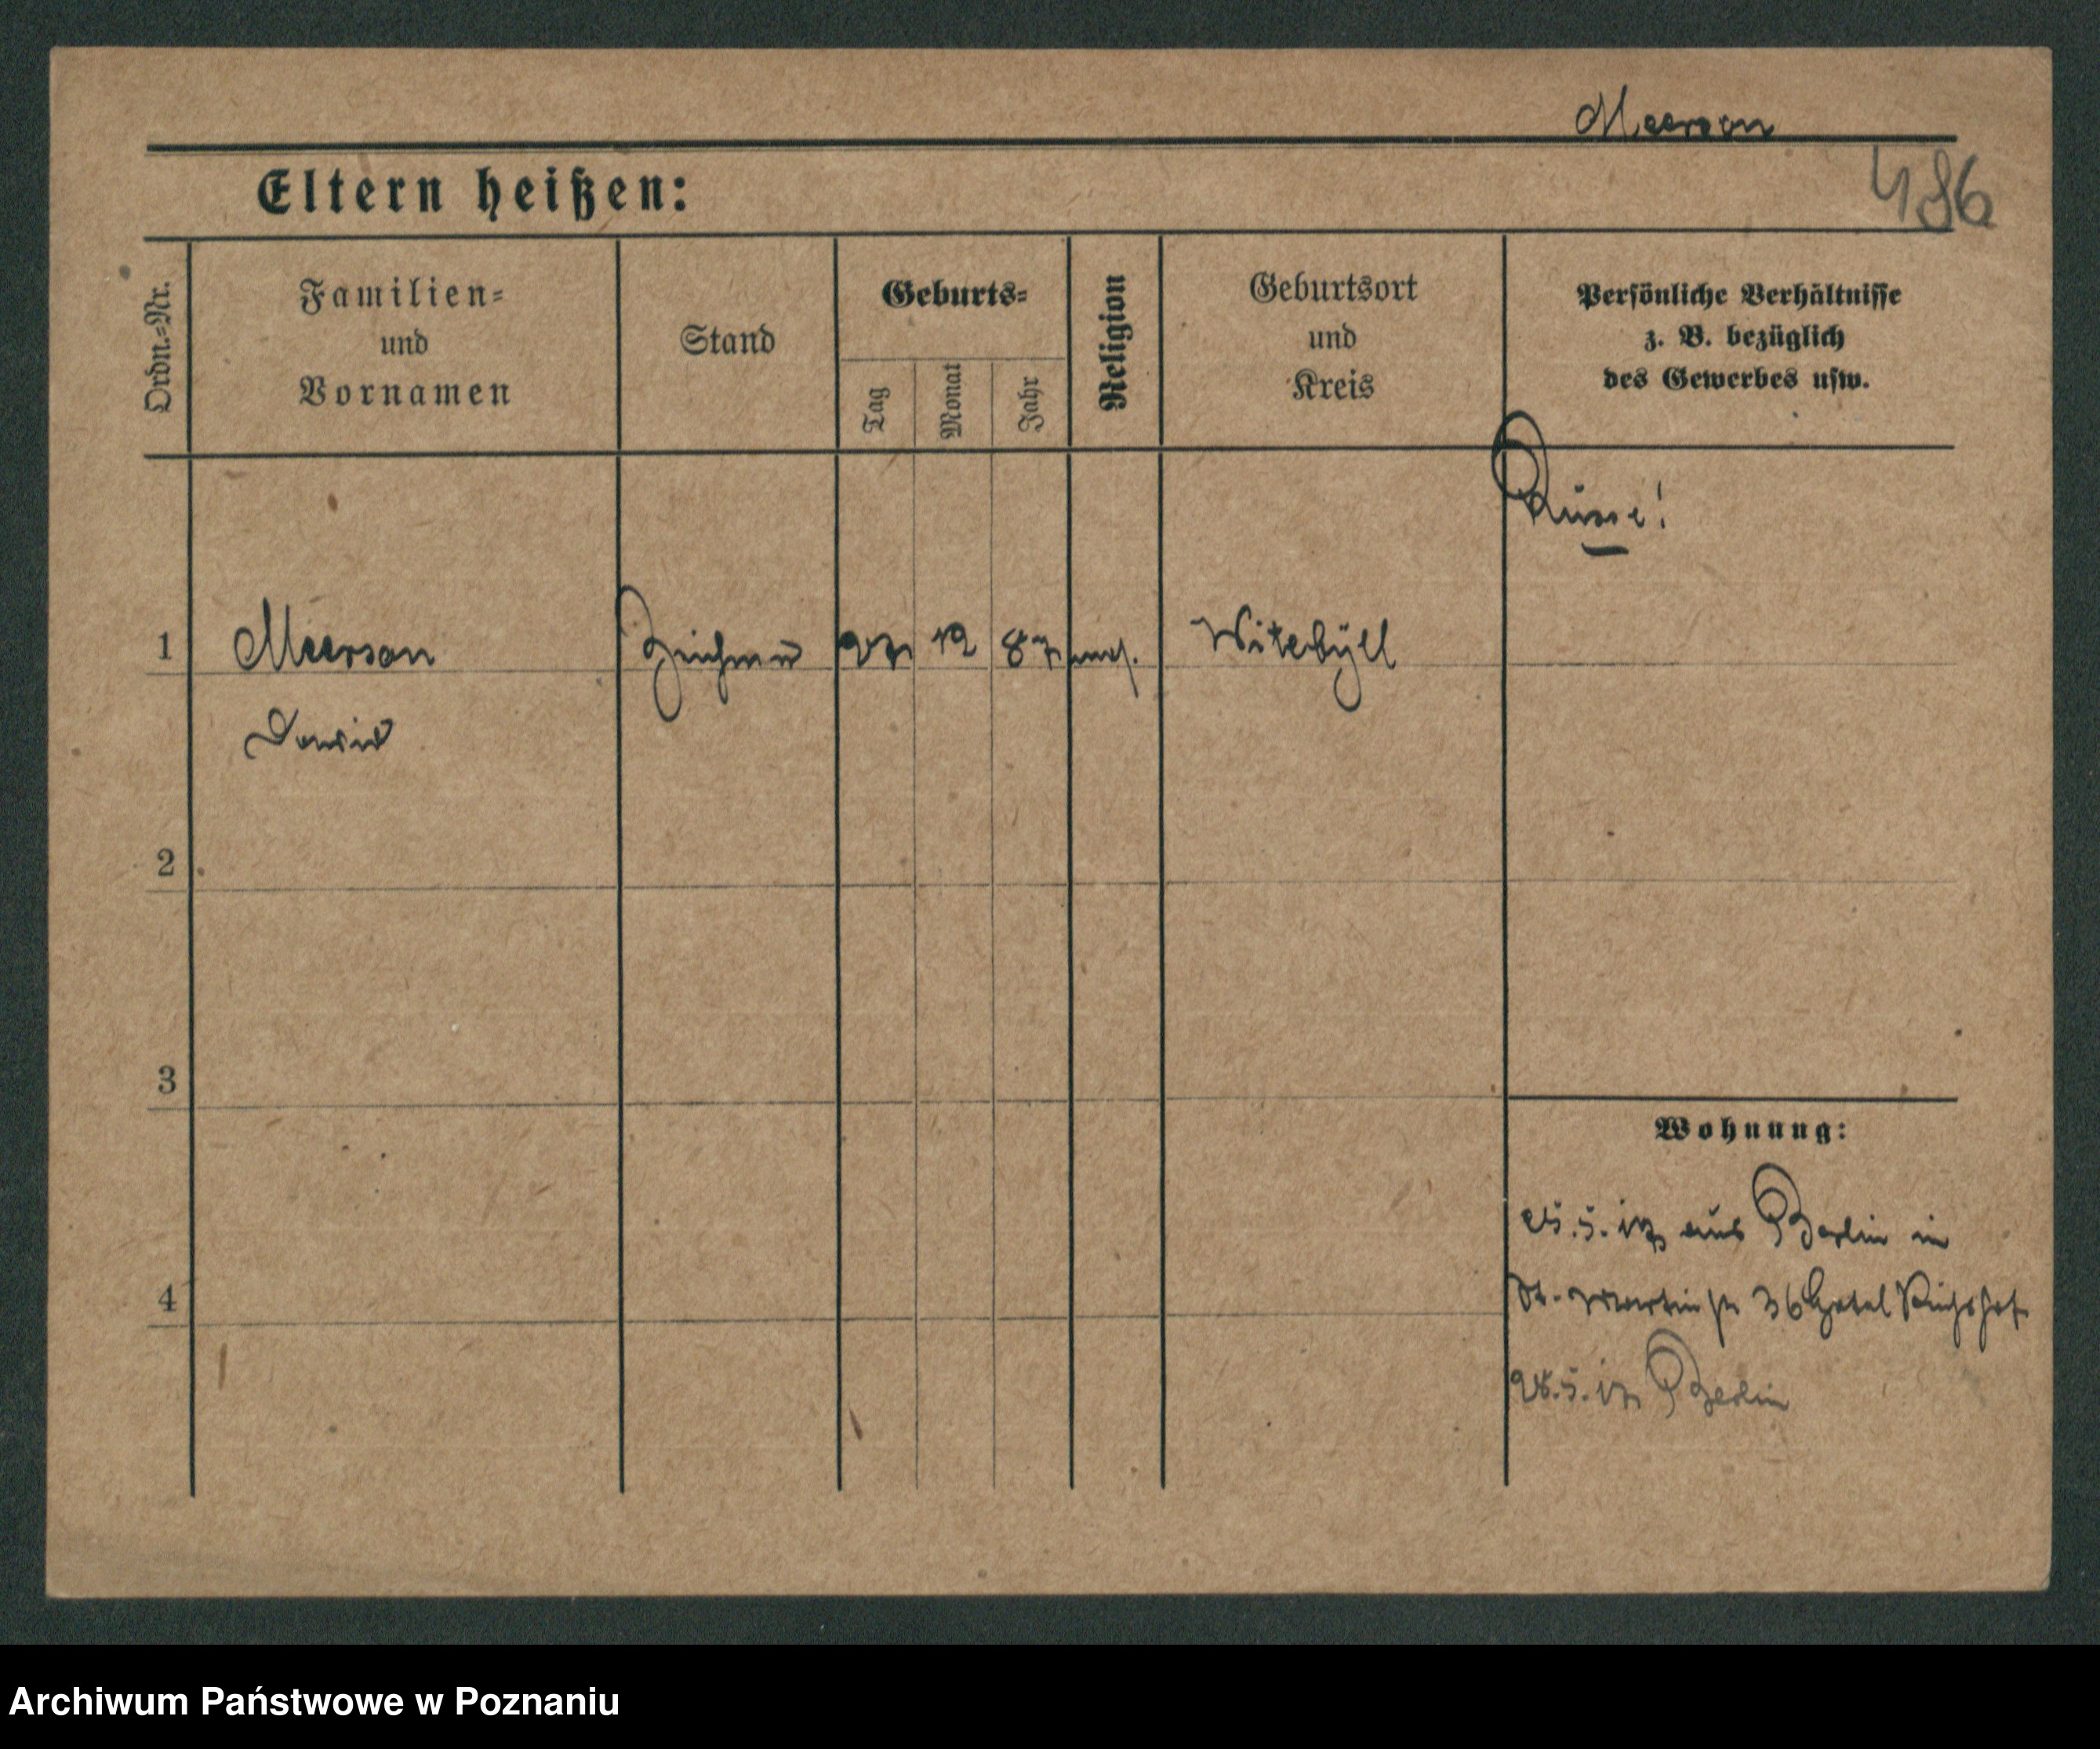 Meerson
486
Eltern heißen:
Ordn.=Nr.
Familien=
und
Vornamen
Stand
Geburts=
Tag
Monat
Jahr
Religion
Geburtsort
und
Kreis
Persönliche Verhältnisse
z. B. bezüglich
des Gewerbes usw.
Russe!
1
Meerson
27 12 87
Dawid
2
3
4
Wohnung:
25.5.17 aus Berlin in
St. Martinstr 36 Hotel Reichshof
28.5.17 Berlin
Archiwum Państwowe w Poznaniu